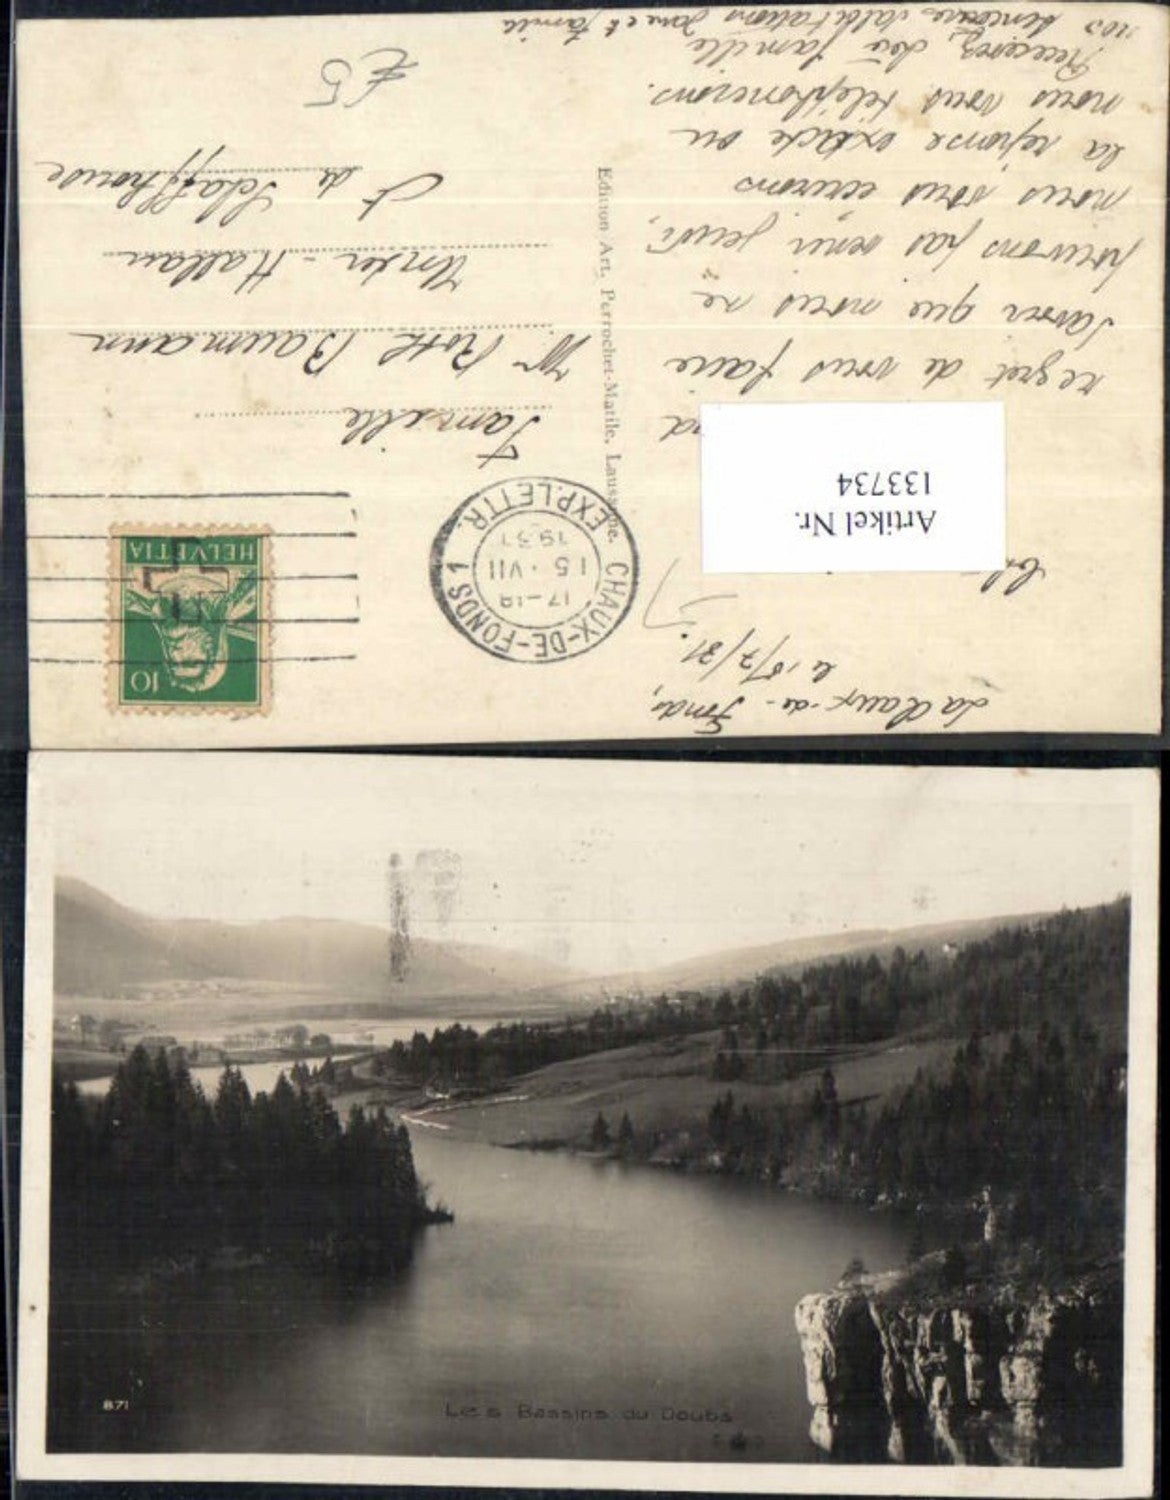 La Chaux-de-Fonds,
le 15/7/31.
regret de vous faire
savoir que nous ne
pouvons pas venir jeudi,
nous vous écurons
la réponse exacte ou
nous vous téléphonerons.
Recevez, chè famille
nos sincères salutations Jame et famille
Edition Art. Perrochet-Matile, Lausanne.
CHAUX-DE-FONDS 1
EXP.LETTR.
17-18
15.VII
1931
10
HELVETIA
Famille
Mr Roth Baumann
Unter-Hallau
Ct de Schaffhouse
£5
Artikel Nr.
133734
871
Les Bassins du Doubs